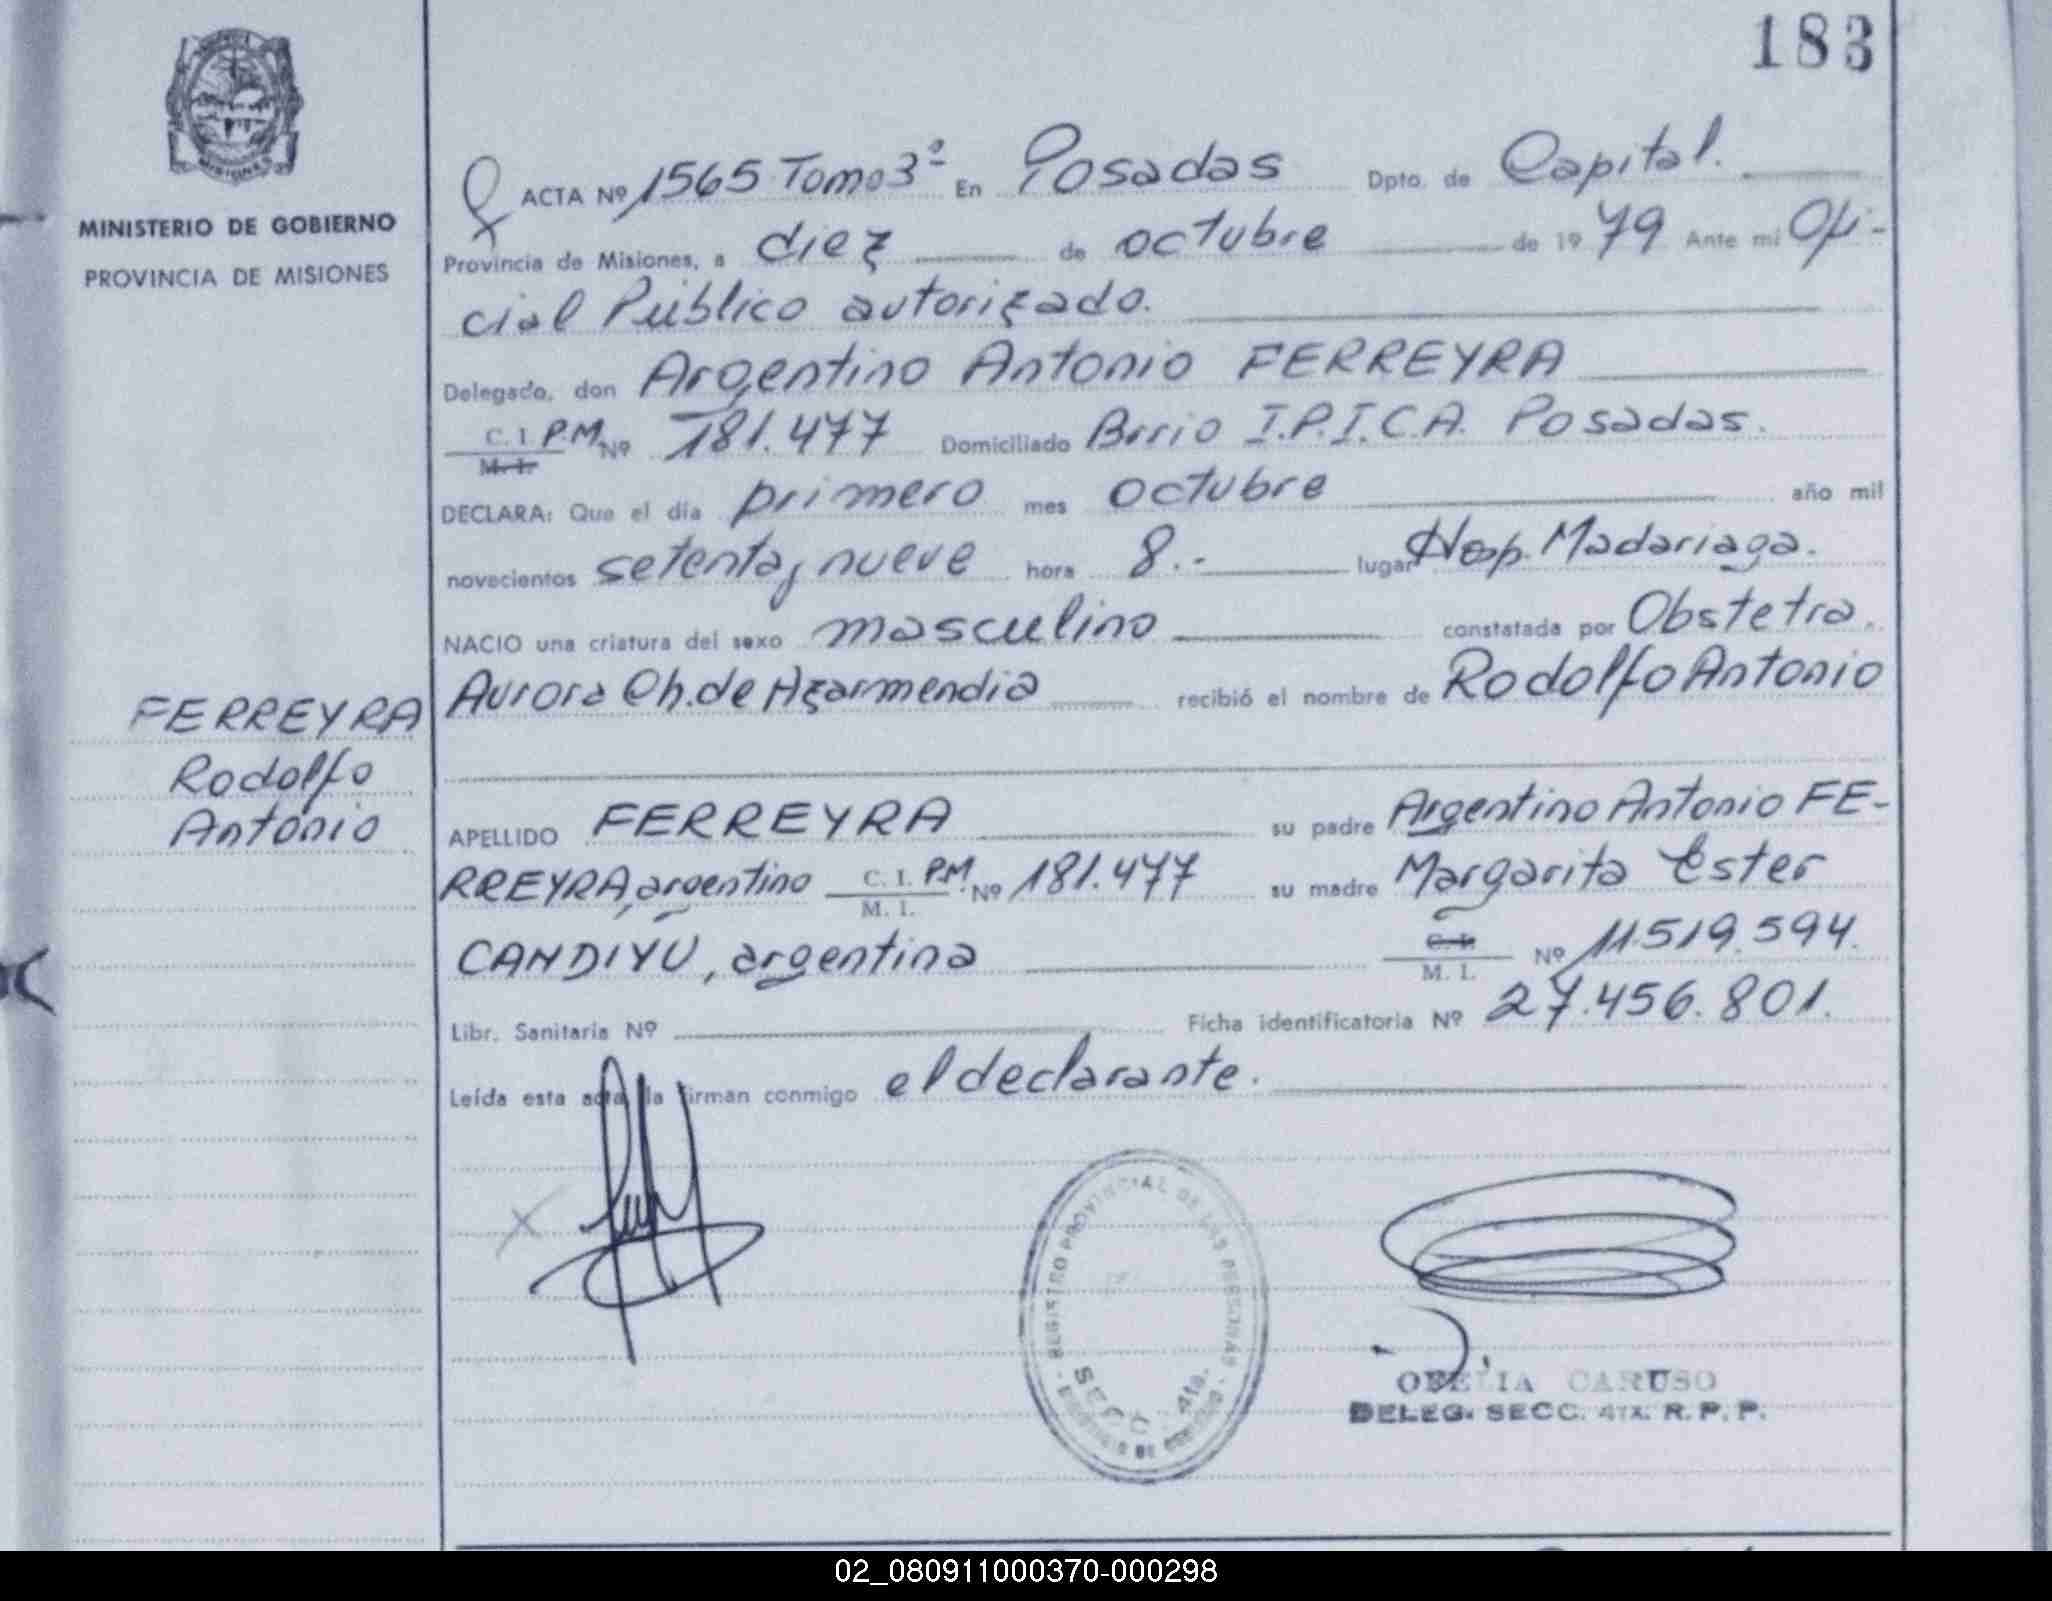 183
MINISTERIO DE GOBIERNO
PROVINCIA DE MISIONES
ACTA Nº 1565 Tomo 3º En Posadas Dpto. de Capital.
Provincia de Misiones, a diez de octubre de 1979 Ante mi Ofi-
cial Público autorizado.
Delegado, don Argentino Antonio FERREYRA
C. I. P.M. Nº 181.477 Domiciliado Brrio I.P.I.C.A. Posadas.
M. I.
DECLARA: Que el día primero mes octubre año mil
novecientos setenta y nueve hora 8.- lugar Hosp. Madariaga.
NACIO una criatura del sexo masculino constatada por Obstetra.
Aurora Ch. de Azarmendia recibió el nombre de Rodolfo Antonio
FERREYRA
Rodolfo
Antonio
APELLIDO FERREYRA su padre Argentino Antonio FE-
RREYRA, argentino C. I. P.M. Nº 181.477 su madre Margarita Ester
M. I.
CANDIYU, argentina C. I. Nº 11.519.594.
M. I.
Libr. Sanitaria Nº Ficha identificatoria Nº 27.456.801.
Leída esta acta la firman conmigo el declarante.
REGISTRO PROVINCIAL DE LAS PERSONAS
SECC. 4ta.
OFELIA CARUSO
DELEG. SECC. 4TA. R. P. P.
02_080911000370-000298